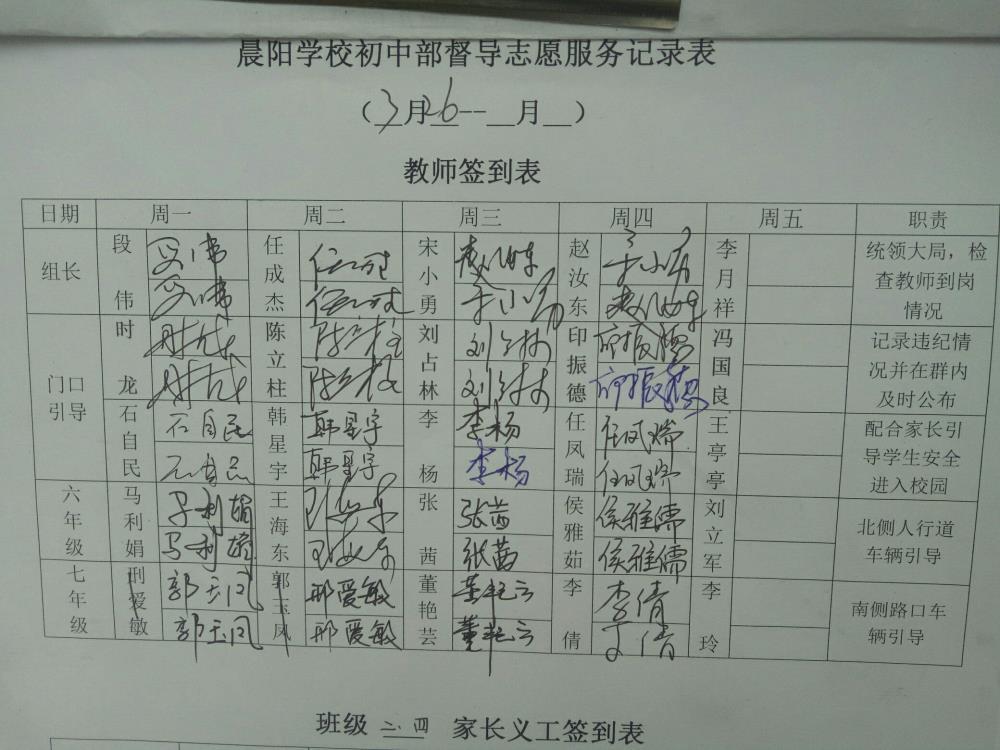 晨阳学校初中部督导志愿服务记录表
（3月26--__月__）
教师签到表
日期 周一 周二 周三 周四 周五 职责
组长 段伟 段伟 段伟 任成杰 任成杰 任成杰 宋小勇 赵汝东 宋小勇 赵汝东 宋小勇 赵汝东 李月祥 统领大局，检查教师到岗情况
门口引导 时龙 时龙 时龙 陈立柱 陈立柱 陈立柱 刘占林 刘占林 刘占林 印振德 印振德 印振德 冯国良 记录违纪情况并在群内及时公布
石自民 石自民 石自民 韩星宇 韩星宇 韩星宇 李杨 李杨 李杨 任凤瑞 任凤瑞 任凤瑞 王亭亭 配合家长引导学生安全进入校园
六年级 马利娟 马利娟 马利娟 王海东 王海东 王海东 张茜 张茜 张茜 侯雅茹 侯雅儒 侯雅儒 刘立军 北侧人行道车辆引导
七年级 刑爱敏 郭玉凤 郭玉凤 郭玉凤 邢爱敏 邢爱敏 董艳芸 董艳云 董艳云 李倩 李倩 李倩 李玲 南侧路口车辆引导
班级 二.四 家长义工签到表